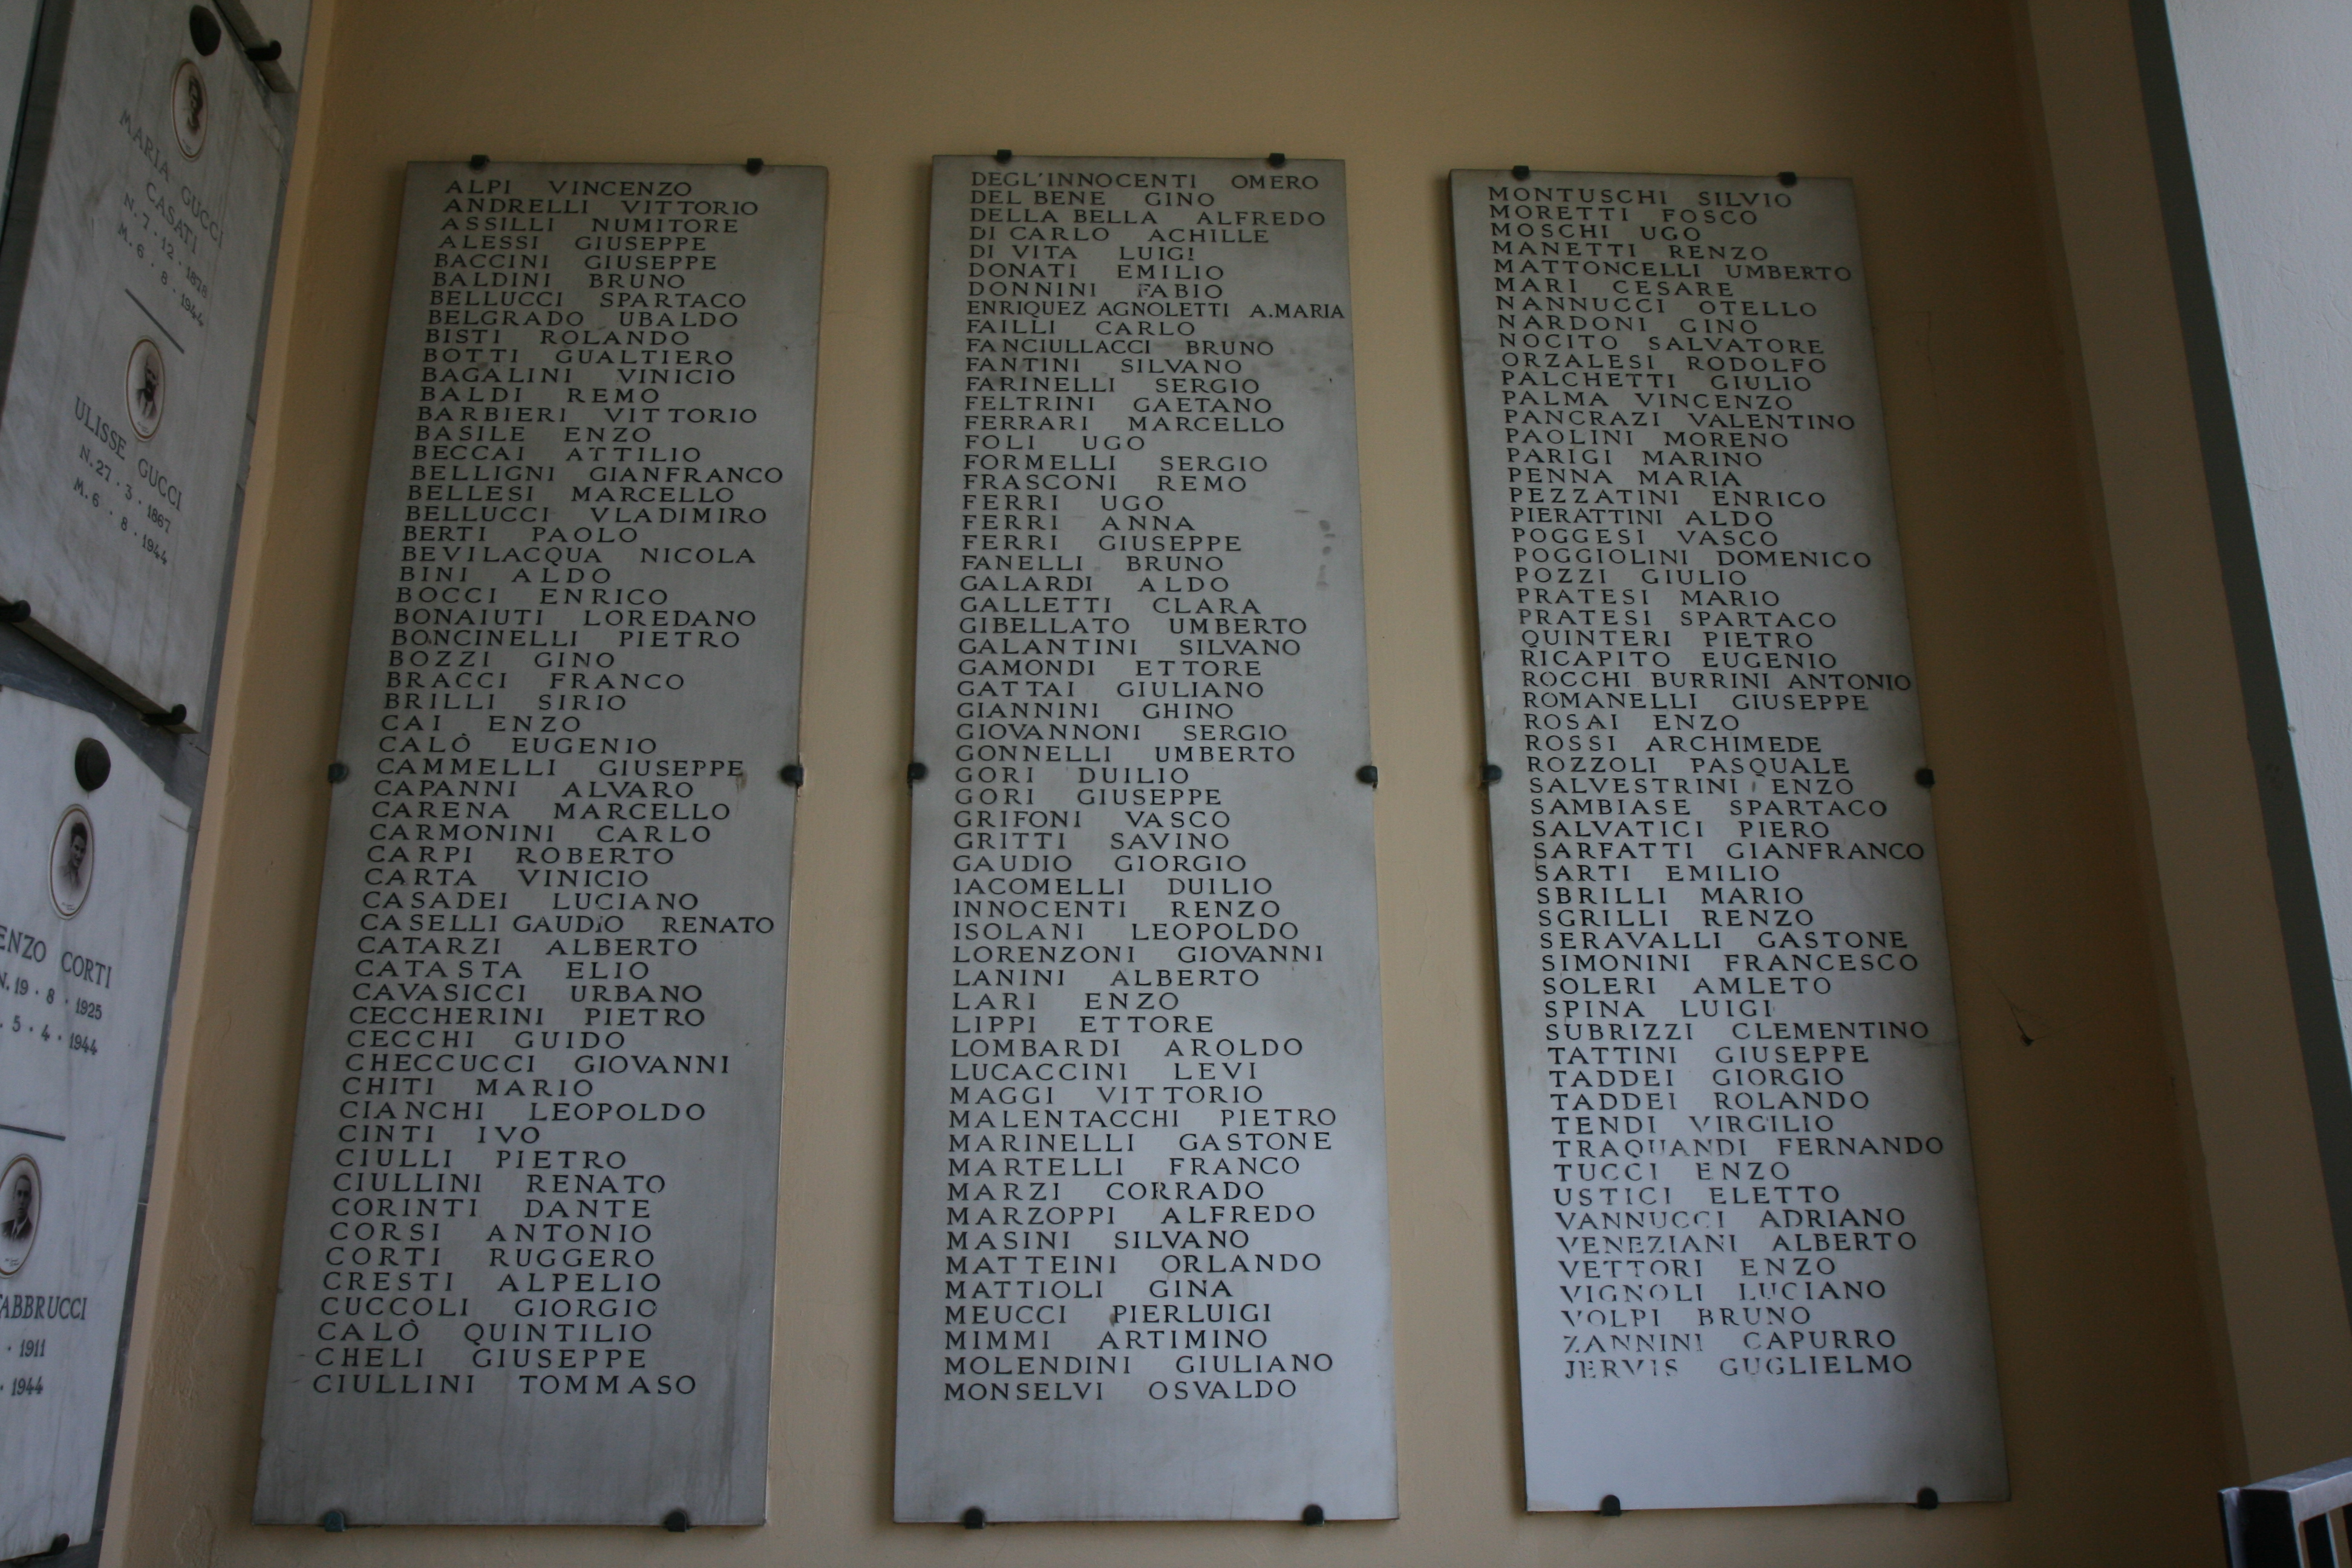 MARIA GUCCI
CASATI
N. 7 · 12 · 1878
M. 6 · 8 · 1944
ULISSE GUCCI
N. 27 · 3 · 1867
M. 6 · 8 · 1944
ENZO CORTI
N. 19 · 8 · 1925
. 5 · 4 · 1944
FABBRUCCI
· 1911
· 1944
ALPI VINCENZO
ANDRELLI VITTORIO
ASSILLI NUMITORE
ALESSI GIUSEPPE
BACCINI GIUSEPPE
BALDINI BRUNO
BELLUCCI SPARTACO
BELGRADO UBALDO
BISTI ROLANDO
BOTTI GUALTIERO
BAGALINI VINICIO
BALDI REMO
BARBIERI VITTORIO
BASILE ENZO
BECCAI ATTILIO
BELLIGNI GIANFRANCO
BELLESI MARCELLO
BELLUCCI VLADIMIRO
BERTI PAOLO
BEVILACQUA NICOLA
BINI ALDO
BOCCI ENRICO
BONAIUTI LOREDANO
BONCINELLI PIETRO
BOZZI GINO
BRACCI FRANCO
BRILLI SIRIO
CAI ENZO
CALÒ EUGENIO
CAMMELLI GIUSEPPE
CAPANNI ALVARO
CARENA MARCELLO
CARMONINI CARLO
CARPI ROBERTO
CARTA VINICIO
CASADEI LUCIANO
CASELLI GAUDIO RENATO
CATARZI ALBERTO
CATASTA ELIO
CAVASICCI URBANO
CECCHERINI PIETRO
CECCHI GUIDO
CHECCUCCI GIOVANNI
CHITI MARIO
CIANCHI LEOPOLDO
CINTI IVO
CIULLI PIETRO
CIULLINI RENATO
CORINTI DANTE
CORSI ANTONIO
CORTI RUGGERO
CRESTI ALPELIO
CUCCOLI GIORGIO
CALÒ QUINTILIO
CHELI GIUSEPPE
CIULLINI TOMMASO
DEGL'INNOCENTI OMERO
DEL BENE GINO
DELLA BELLA ALFREDO
DI CARLO ACHILLE
DI VITA LUIGI
DONATI EMILIO
DONNINI FABIO
ENRIQUEZ AGNOLETTI A.MARIA
FAILLI CARLO
FANCIULLACCI BRUNO
FANTINI SILVANO
FARINELLI SERGIO
FELTRINI GAETANO
FERRARI MARCELLO
FOLI UGO
FORMELLI SERGIO
FRASCONI REMO
FERRI UGO
FERRI ANNA
FERRI GIUSEPPE
FANELLI BRUNO
GALARDI ALDO
GALLETTI CLARA
GIBELLATO UMBERTO
GALANTINI SILVANO
GAMONDI ETTORE
GATTAI GIULIANO
GIANNINI GHINO
GIOVANNONI SERGIO
GONNELLI UMBERTO
GORI DUILIO
GORI GIUSEPPE
GRIFONI VASCO
GRITTI SAVINO
GAUDIO GIORGIO
IACOMELLI DUILIO
INNOCENTI RENZO
ISOLANI LEOPOLDO
LORENZONI GIOVANNI
LANINI ALBERTO
LARI ENZO
LIPPI ETTORE
LOMBARDI AROLDO
LUCACCINI LEVI
MAGGI VITTORIO
MALENTACCHI PIETRO
MARINELLI GASTONE
MARTELLI FRANCO
MARZI CORRADO
MARZOPPI ALFREDO
MASINI SILVANO
MATTEINI ORLANDO
MATTIOLI GINA
MEUCCI PIERLUIGI
MIMMI ARTIMINO
MOLENDINI GIULIANO
MONSELVI OSVALDO
MONTUSCHI SILVIO
MORETTI FOSCO
MOSCHI UGO
MANETTI RENZO
MATTONCELLI UMBERTO
MARI CESARE
NANNUCCI OTELLO
NARDONI GINO
NOCITO SALVATORE
ORZALESI RODOLFO
PALCHETTI GIULIO
PALMA VINCENZO
PANCRAZI VALENTINO
PAOLINI MORENO
PARIGI MARINO
PENNA MARIA
PEZZATINI ENRICO
PIERATTINI ALDO
POGGESI VASCO
POGGIOLINI DOMENICO
POZZI GIULIO
PRATESI MARIO
PRATESI SPARTACO
QUINTERI PIETRO
RICAPITO EUGENIO
ROCCHI BURRINI ANTONIO
ROMANELLI GIUSEPPE
ROSAI ENZO
ROSSI ARCHIMEDE
ROZZOLI PASQUALE
SALVESTRINI ENZO
SAMBIASE SPARTACO
SALVATICI PIERO
SARFATTI GIANFRANCO
SARTI EMILIO
SBRILLI MARIO
SGRILLI RENZO
SERAVALLI GASTONE
SIMONINI FRANCESCO
SOLERI AMLETO
SPINA LUIGI
SUBRIZZI CLEMENTINO
TATTINI GIUSEPPE
TADDEI GIORGIO
TADDEI ROLANDO
TENDI VIRGILIO
TRAQUANDI FERNANDO
TUCCI ENZO
USTICI ELETTO
VANNUCCI ADRIANO
VENEZIANI ALBERTO
VETTORI ENZO
VIGNOLI LUCIANO
VOLPI BRUNO
ZANNINI CAPURRO
JERVIS GUGLIELMO